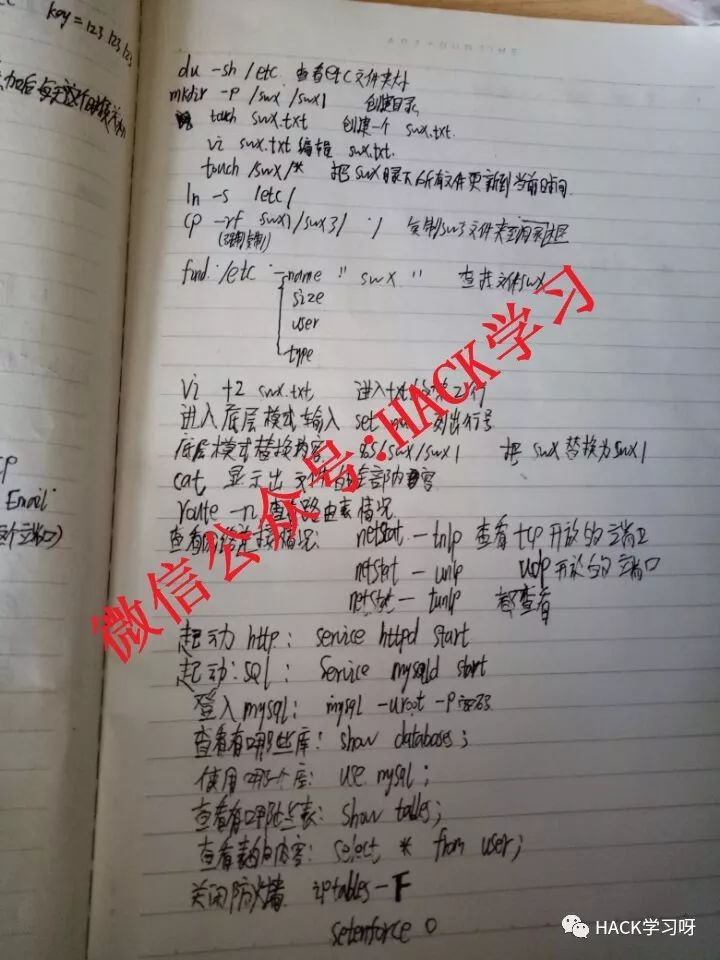 key = 123 123 123
du -sh /etc 查看etc文件夹大小
mkdir -p /swx /swx1 创建目录
touch swx.txt 创建一个 swx.txt.
vi swx.txt 编辑 swx.txt.
touch /swx/* 把swx目录下所有文件更新到当前时间
ln -s /etc/
cp -rf swx1/swx3/ ./ 复制/sw3文件夹至
(强制复制)
find /etc -name " swx " 查找文件swx
size
user
type
vi +2 swx.txt 进入txt 第2行
进入底层模式输入 set 列出行号
底层模式替换内容 %s/swx/swx1 把swx替换为swx1
cat 显示出文件的全部内容
route -n 查看路由表情况
查看网络连接情况: netstat -tnlp 查看tcp开放的端口
netstat -unlp udp开放的端口
netstat -tunlp 都查看
起动http: service httpd start
起动:sql: service mysqld start
登入mysql: mysql -uroot -p密码
查看有哪些库: show databases;
使用哪个库: use mysql;
查看有哪些表: show tables;
查看表的内容: select * from user;
关闭防火墙 iptables -F
setenforce 0
Email
微信公众号:HACK学习
HACK学习呀